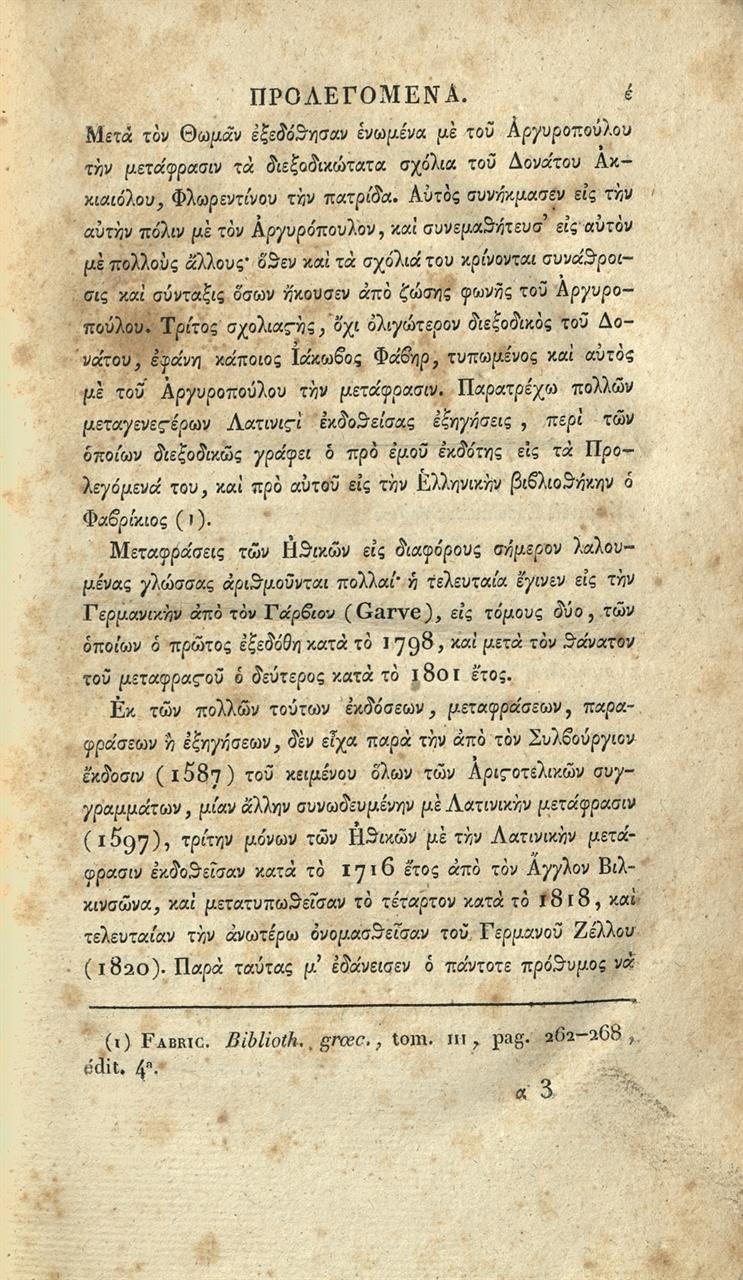 ΠΡΟΛΕΓΟΜΕΝΑ. έ
Μετὰ τὸν Θωμᾶν ἐξεδόϑησαν ἑνωμένα μὲ τοῦ Ἀργυροπούλου
τὴν μετάφρασιν τὰ διεξοδικώτατα σχόλια τοῦ Δονάτου Ἀκ-
κιαιόλου, Φλωρεντίνου τὴν πατρίδα. Αὐτὸς συνήκμασεν εἰς τὴν
αὐτὴν πόλιν μὲ τὸν Ἀργυρόπουλον, καὶ συνεμαϑήτευσ' εἰς αὐτὸν
μὲ πολλοὺς ἄλλους· ὅϑεν καὶ τὰ σχόλιά του κρίνονται συνάϑροι-
σις καὶ σύνταξις ὅσων ἤκουσεν ἀπὸ ζώσης φωνῆς τοῦ Ἀργυρο-
πούλου. Τρίτος σχολιαϛὴς, ὄχι ὀλιγώτερον διεξοδικὸς τοῦ Δο-
νάτου, ἐφάνη κάποιος Ἰάκωϐος Φάϐηρ, τυπωμένος καὶ αὐτὸς
μὲ τοῦ Ἀργυροπούλου τὴν μετάφρασιν. Παρατρέχω πολλῶν
μεταγενεϛέρων Λατινιϛὶ ἐκδοϑείσας ἐξηγήσεις, περὶ τῶν
ὁποίων διεξοδικῶς γράφει ὁ πρὸ ἐμοῦ ἐκδότης εἰς τὰ Προ-
λεγόμενά του, καὶ πρὸ αὐτοῦ εἰς τὴν Ἑλληνικὴν βιϐλιοϑήκην ὁ
Φαϐρίκιος (1).
Μεταφράσεις τῶν Ἠϑικῶν εἰς διαφόρους σήμερον λαλου-
μένας γλώσσας ἀριϑμοῦνται πολλαί· ἡ τελευταία ἔγινεν εἰς τὴν
Γερμανικὴν ἀπὸ τὸν Γάρϐιον (Garve), εἰς τόμους δύο, τῶν
ὁποίων ὁ πρῶτος ἐξεδόθη κατὰ τὸ 1798, καὶ μετὰ τὸν ϑάνατον
τοῦ μεταφραϛοῦ ὁ δεύτερος κατὰ τὸ 1801 ἔτος.
Ἐκ τῶν πολλῶν τούτων ἐκδόσεων, μεταφράσεων, παρα-
φράσεων ἢ ἐξηγήσεων, δὲν εἶχα παρὰ τὴν ἀπὸ τὸν Συλϐούργιον
ἔκδοσιν (1587) τοῦ κειμένου ὅλων τῶν Ἀριϛοτελικῶν συγ-
γραμμάτων, μίαν ἄλλην συνωδευμένην μὲ Λατινικὴν μετάφρασιν
(1597), τρίτην μόνων τῶν Ἠϑικῶν μὲ τὴν Λατινικὴν μετά-
φρασιν ἐκδοϑεῖσαν κατὰ τὸ 1716 ἔτος ἀπὸ τὸν Ἄγγλον Βιλ-
κινσῶνα, καὶ μετατυπωϑεῖσαν τὸ τέταρτον κατὰ τὸ 1818, καὶ
τελευταίαν τὴν ἀνωτέρω ὀνομασϑεῖσαν τοῦ Γερμανοῦ Ζέλλου
(1820). Παρὰ ταύτας μ' ἐδάνεισεν ὁ πάντοτε πρόϑυμος νὰ
(1) FABRIC. Biblioth. græc., tom. III, pag. 262–268,
édit. 4ª.
α 3